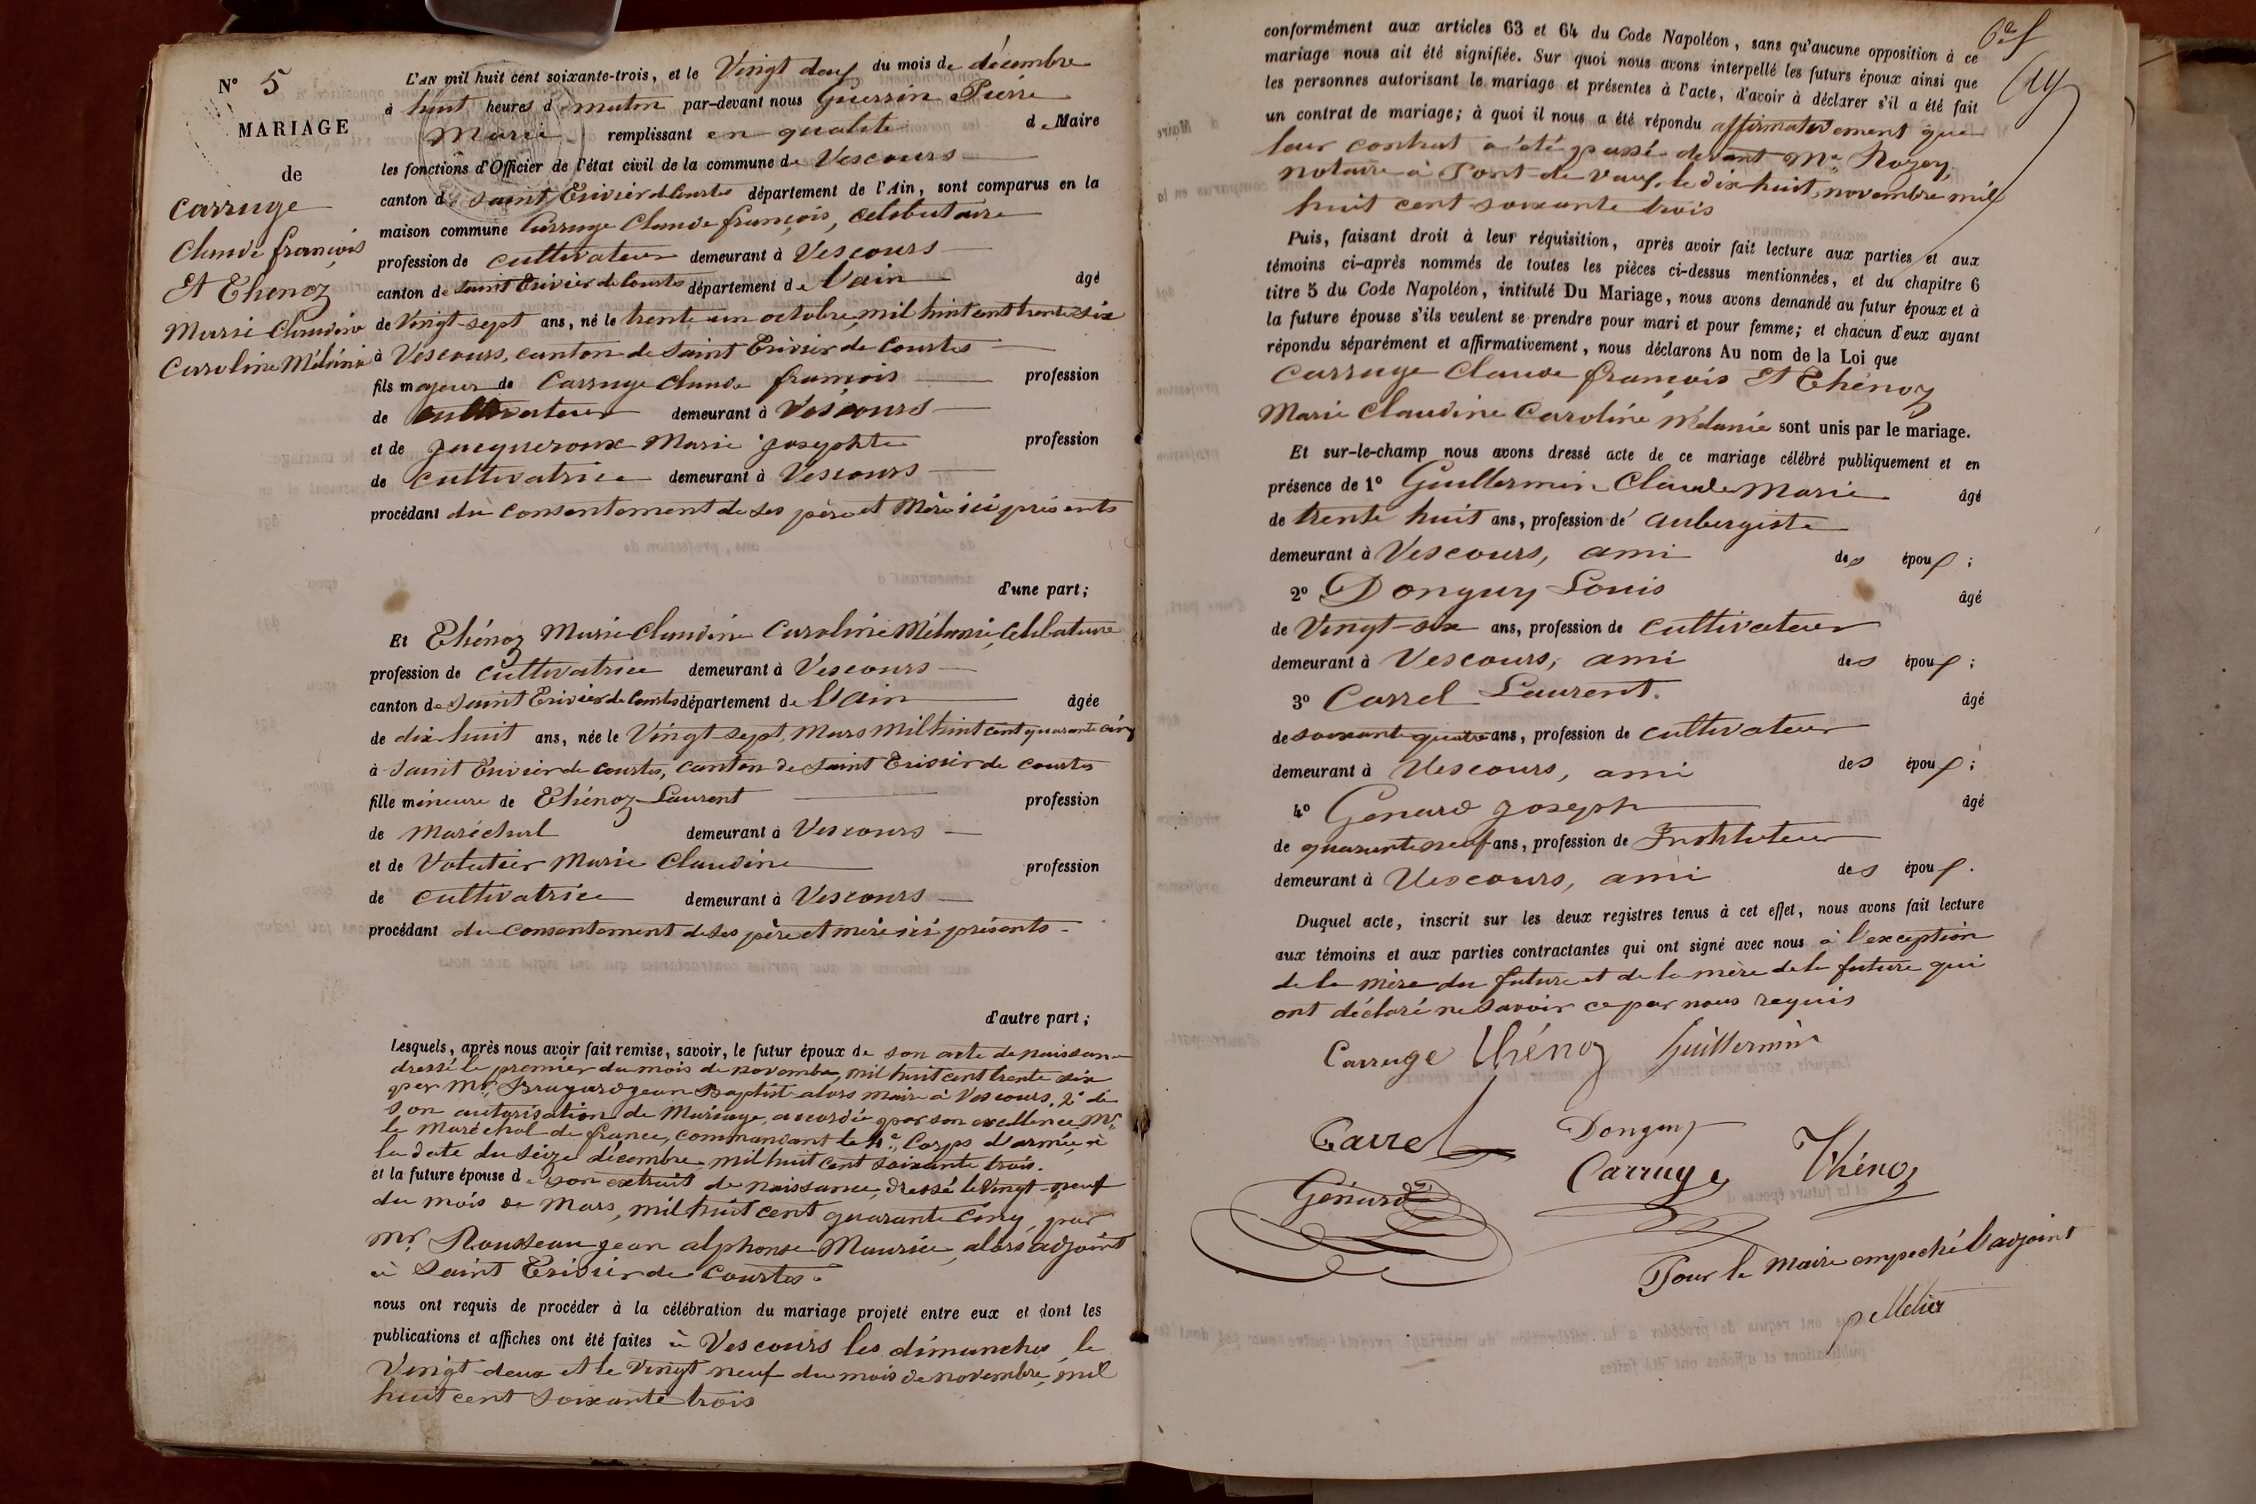 N° 5
MARIAGE
de
Carruge
Claude françois
Et Thenoz
Marie Claudine
Caroline Mélanie
L'AN mil huit cent soixante-trois, et le Vingt deux du mois de décembre
à huit heures d matin par-devant nous Guerrin Pierre
Marie remplissant en qualité d Maire
les fonctions d'Officier de l'état civil de la commune de Vescours
canton de Saint Trivier de Courtes département de l'Ain, sont comparus en la
maison commune Carruge Claude françois, Célibataire
profession de cultivateur demeurant à Vescours
canton de Saint Trivier de Courtes département de l'ain âgé
de Vingt-sept ans, né le trente un octobre, mil huit cent trente six
à Vescours, canton de Saint Trivier de Courtes
fils majeur de Carruge Claude françois profession
de cultivateur demeurant à Vescours
et de Jacqueroux Marie Josephte profession
de cultivatrice demeurant à Vescours
procédant du Consentement de ses père et Mère ici présents
d'une part;
Et Thénoz Marie Claudine Caroline Mélanie, Célibataire
profession de Cultivatrice demeurant à Vescours
canton de Saint Trivier de Courtes département de l'Ain âgée
de dix huit ans, née le Vingt-sept Mars Mil huit cent quarante cinq
à Saint Trivier de Courtes, Canton de Saint Trivier de Courtes
fille mineure de Thénoz Laurent profession
de Maréchal demeurant à Vescours
et de Volatier Marie Claudine profession
de Cultivatrice demeurant à Vescours
procédant du Consentement de ses père et mère ici présents
d'autre part;
Lesquels, après nous avoir fait remise, savoir, le futur époux de son acte de naissance
dressé le premier du mois de novembre, mil huit cent trente six
par Mr. Brugard jean Baptiste alors maire à Vescours, 2° de
son autorisation de Mariage, accordée par son excellence Mr.
le Maréchal de france, commandant le 4e Corps d'armée, à
la date du seize décembre mil huit cent soixante trois.
et la future épouse de son extrait de naissance, dressé le Vingt-neuf
du mois de Mars, mil huit cent quarante cinq, par
Mr. Rousseau jean alphonse Maurice, alors adjoint
à Saint Trivier de Courtes.
nous ont requis de procéder à la célébration du mariage projeté entre eux et dont les
publications et affiches ont été faites à Vescours les dimanches le
Vingt deux et le Vingt neuf du mois de novembre, mil
huit cent soixante trois
conformément aux articles 63 et 64 du Code Napoléon, sans qu'aucune opposition à ce
mariage nous ait été signifiée. Sur quoi nous avons interpellé les futurs époux ainsi que
les personnes autorisant le mariage et présentes à l'acte, d'avoir à déclarer s'il a été fait
un contrat de mariage; à quoi il nous a été répondu affirmativement que
leur contrat a été passé devant Me
notaire à Pont-de-vaux, le dix huit novembre mil
huit cent soixante trois
Puis, faisant droit à leur réquisition, après avoir fait lecture aux parties et aux
témoins ci-après nommés de toutes les pièces ci-dessus mentionnées, et du chapitre 6
titre 5 du Code Napoléon, intitulé Du Mariage, nous avons demandé au futur époux et à
la future épouse s'ils veulent se prendre pour mari et pour femme; et chacun d'eux ayant
répondu séparément et affirmativement, nous déclarons Au nom de la Loi que
Carruge Claude françois Et Thénoz
Marie Claudine Caroline Mélanie sont unis par le mariage.
Et sur-le-champ nous avons dressé acte de ce mariage célébré publiquement et en
présence de 1° Guillermin Claude Marie âgé
de trente huit ans, profession de aubergiste
demeurant à Vescours, ami des époux;
2° Donguy Louis âgé
de Vingt-six ans, profession de cultivateur
demeurant à Vescours, ami des époux;
3° Carrel Laurent. âgé
de soixante quatre ans, profession de cultivateur
demeurant à Vescours, ami des époux;
4° Genard Joseph âgé
de quarante neuf ans, profession de Instituteur
demeurant à Vescours, ami des époux.
Duquel acte, inscrit sur les deux registres tenus à cet effet, nous avons fait lecture
aux témoins et aux parties contractantes qui ont signé avec nous à l'exception
de la mère du future et de la mère de la future qui
ont déclaré ne savoir ce par nous requis
Carruge Thénoz Guillermin
Carrel Donguy
Génard Carruge Thénoz
Pour le Maire empeché l'adjoint
pelletier